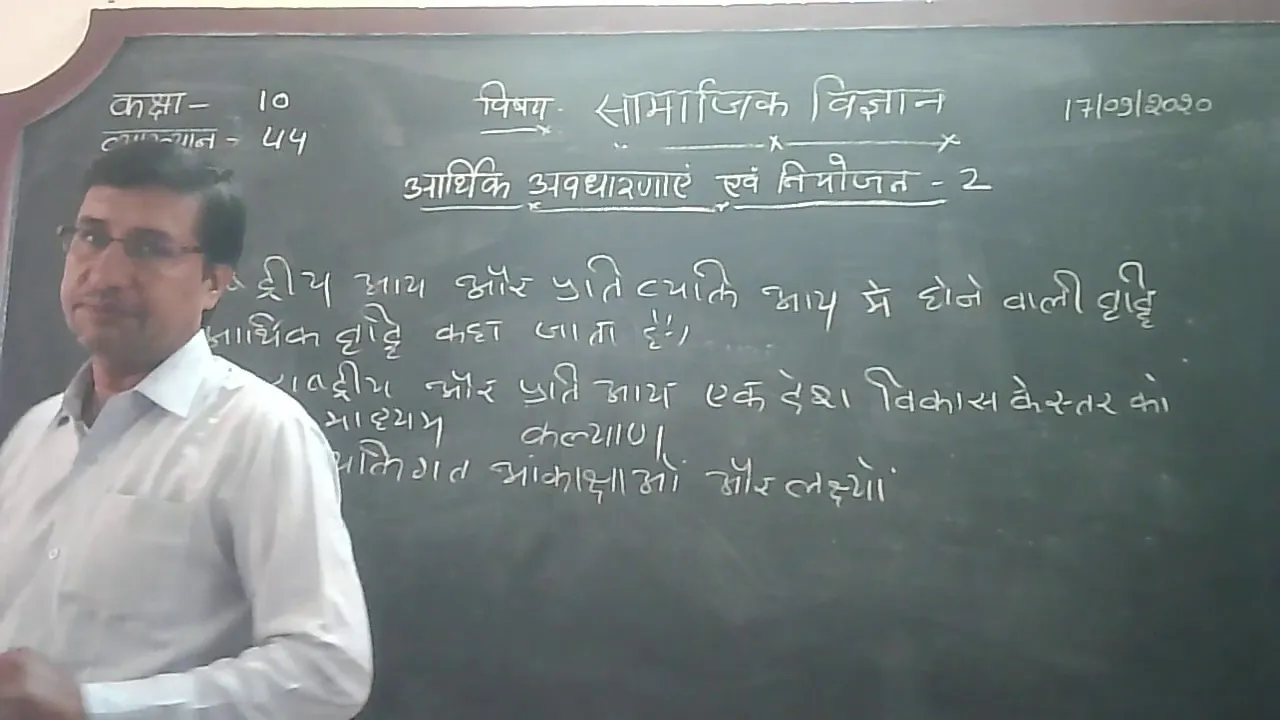 कक्षा - 10 विषय - सामाजिक विज्ञान 17/09/2020
व्याख्यान - 44
आर्थिक अवधारणाएं एवं नियोजन - 2
द्रीय आय और प्रति व्यक्ति आय मे होने वाली वृद्धि
आर्थिक वृद्धि कहा जाता है"।
द्रीय और प्रति आय एक देश विकास के स्तर को
माध्यम कल्याण।
क्तिगत आंकाक्षाओं और लक्ष्यों